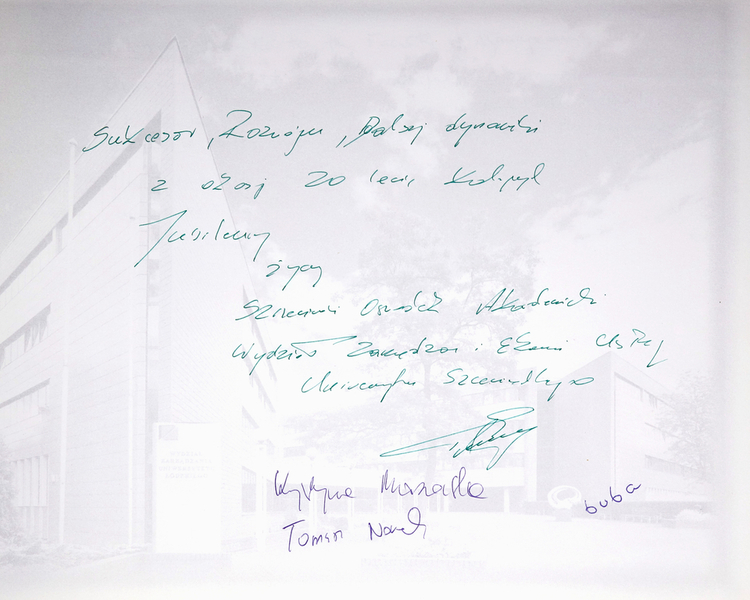 Sukcesów, Rozwoju, Dalszej dynamiki
z okazji 20 lecia Kolejnych
Jubileuszy
życzy
Szczeciński Ośrodek Akademicki
Wydział Zarządzania i Ekonomiki Usług
Uniwersytetu Szczecińskiego
Tomasz Nowak
buba